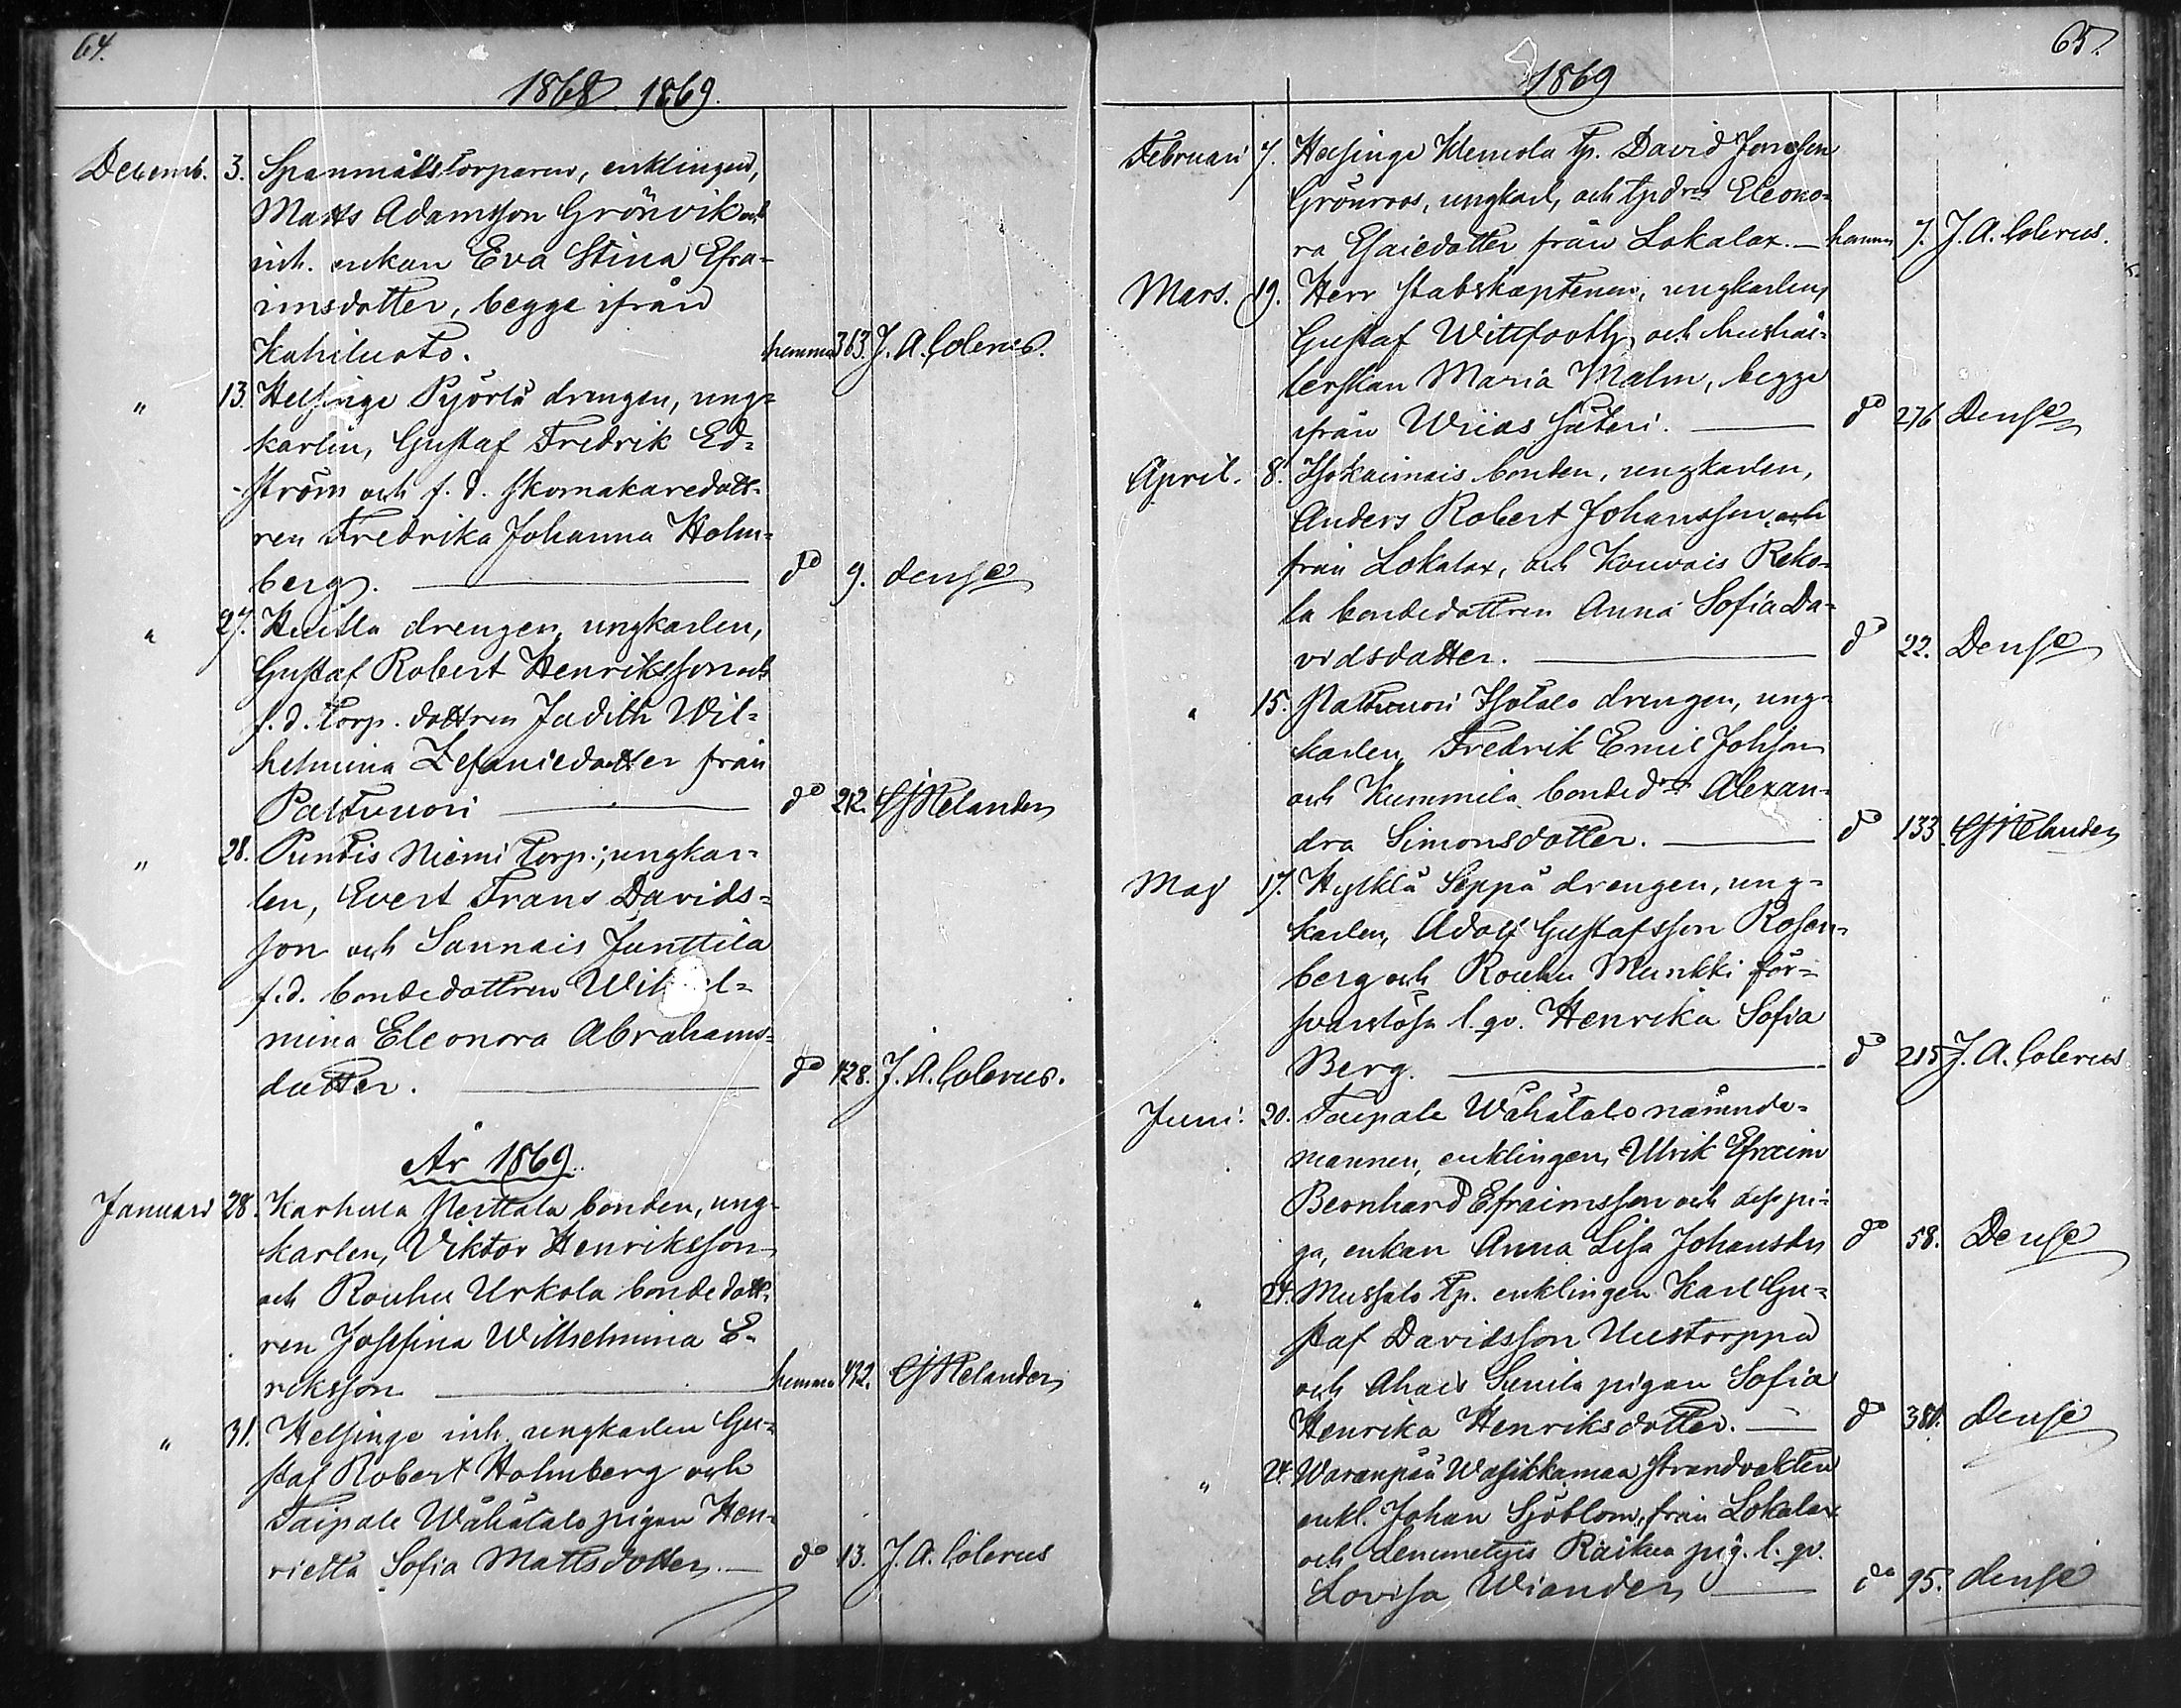 64.
1868. 1869.
Decemb. 3. Spanmålstorparen, enklingen,
Matts Adamsson Grönvik och
inh. enkan Eva Stina Efra-
imsdotter, begge ifrån
Kahiluoto. hemma 363. J. A. Colerus.
" 13. Helsinge Pyörlä drengen, ung-
karlen, Gustaf Fredrik Ed-
ström och f. d. skomakaredott-
ren Fredrika Johanna Holm-
berg. do 9. dense
" 27. drengen, ungkarlen,
Gustaf Robert Henriksson och
f. d. torp. dottren Judith Wil-
helmina Zefaniedotter från
Paltvuori do 212. Helander
" 28. Puntis Niemi torp., ungkar-
len, Evert Frans Davids-
son och Sannais Junttila
f. d. bondedottren Wilhel-
mina Eleonora Abrahams-
dotter. do 428. J. A. Colerus.
År 1869.
Januari 28. Karhula Perttala bonden, ung-
karlen, Viktor Henriksson
och Rouhu Urkola bondedott-
ren Josefina Wilhelmina E-
riksson hemma 432. Helander
" 31. Helsinge inh. ungkarlen Gu-
staf Robert Holmberg och
Taipale Wähätalo pigan Hen-
rietta Sofia Mattsdotter. do 13. J. A. Colerus
65.
1869
Februari 7. Helsinge Klemola tp. David Jonsson
Grönroos, ungkarl, och Eleono-
ra Esaiedotter från Lokalax. hemma 7. J. A. Colerus.
Mars. 19. Herr stabskaptenen, ungkarlen,
Gustaf Wittfooth och hushål-
lerskan Maria Malm, begge
ifrån Wiias säteri. do 276 Dense
April. 8. bonden, ungkarlen,
Anders Robert Johansson och
från Lokalax, och Kouvois Reko-
la bondedottren Anna Sofia Da-
vidsdotter. do 22. Dense
" 15. Paltvuori Isotalo drengen, ung-
karlen, Fredrik Emil Johsson
och Kummila bonded:r Alexan-
dra Simonsdotter. do 133. Helander
Maj 17. Hylklä Seppä drengen, ung-
karlen, Adolf Gustafsson Rosen-
berg och Rouhu Munkki för-
svarslösa l. qv. Henrika Sofia
Berg. do 215 J. A. Colerus
Juni. 20. Taipale Wähätalo nämnde-
mannen, enklingen, Ulrik Efraim
Bernhard Efraimsson och dess pi-
ga, enkan Anna Lisa Johansdtr do 58. Dense
" 24. Mussalo tp. enklingen Karl Gu-
staf Davidsson Uustorppa
och Ahais Sunila pigan Sofia
Henrika Henriksdotter. do 380. dense
" 24. Waranpää Wasikkamaa strandvakten
enkl. Johan Sjöblom, från Lokalax
och Lemmetyis Räikea pig. l. qv.
Lovisa Wiander do 95. dense